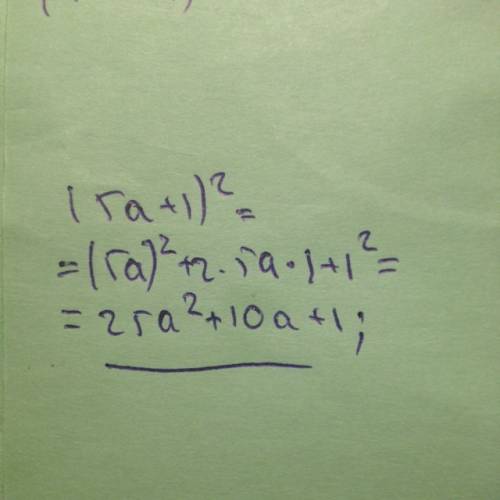 (5a+1)²=
=(5a)²+2·5a·1+1²=
=25a²+10a+1;